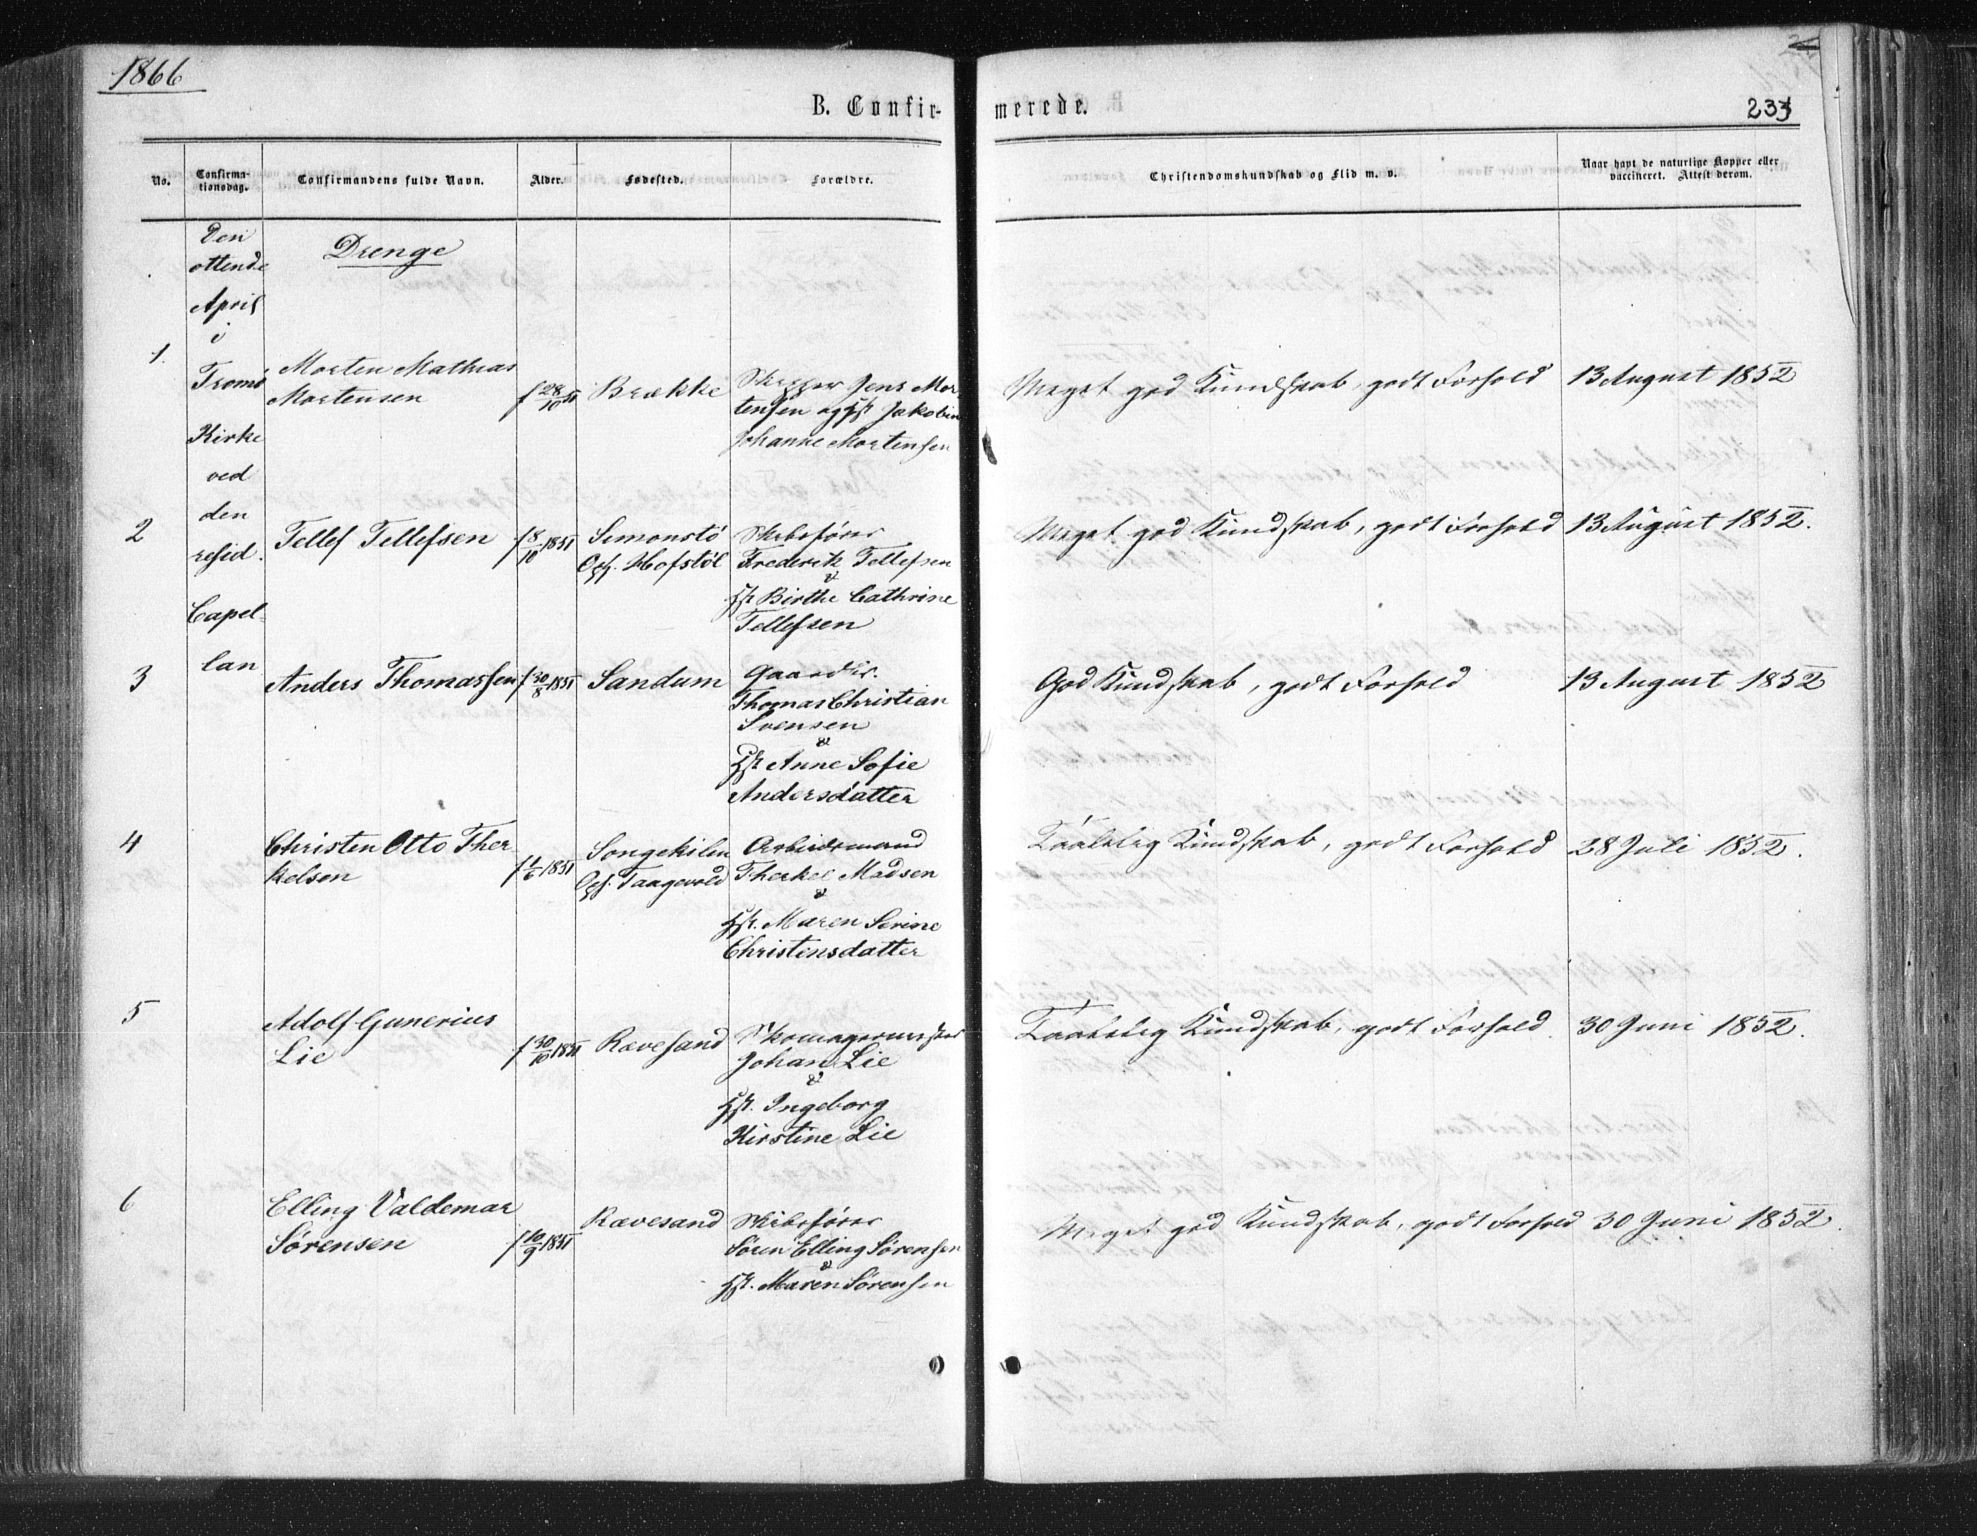 1866
B. Confir-
merede.
233
No.
Confirma-
tionsdag.
Confirmandens fulde Navn.
Alder.
Fødested.
Forældre.
Christendomskundskab og Flid m. v.
Naar havt de naturlige Kopper eller
vaccineret. Attest derom.
Den
ottende
April
i
Tromø
Kirke
ved
den
resid.
Capel-
lan
Drenge
1.
Morten Mathias
Mortensen
f 28/10 51
Brække
Skipper Jens Mor
tensen og Hst Jakobine
Johanne Mortensen
Meget god Kundskab, godt Forhold
13 August 1852
2
Tellef Tellefsen
f 8/10 1851
Simonstø
Opf. Hofstøl
Skibsfører
Frederik Tellefsen
&
Hst Birthe Cathrine
Tellefsen
Meget god Kundskab, godt Forhold
13 August 1852.
3
Anders Thomassen
f 30/8 1851
Sandum
Gaardbr.
Thomas Christian
Svensen
&
Hst Anne Sofie
Andersdatter
God Kundskab, godt Forhold
13 August 1852
4
Christen Otto Ther
kelsen
f 1/6 1851
Songekilen
Opf. Taagevold
Arbeidsmand
Therkel Madsen
&
Hst. Maren Serine
Christensdatter
Taalelig Kundskab, godt Forhold
28 Juli 1852.
5
Adolf Gunerius
Lie
f 30/10 1851
Rævesand
Skomagermester
Johan Lie
&
Hst. Ingeborg
Kirstine Lie
Taalelig Kundskab, godt Forhold.
30 Juni 1852.
6
Elling Valdemar
Sørensen
f 10/9 1851
Rævesand
Skibsfører
Søren Elling Sørensen
&
Hst. Maren Sørensen
Meget god Kundskab, godt Forhold
30 Juni 1852.